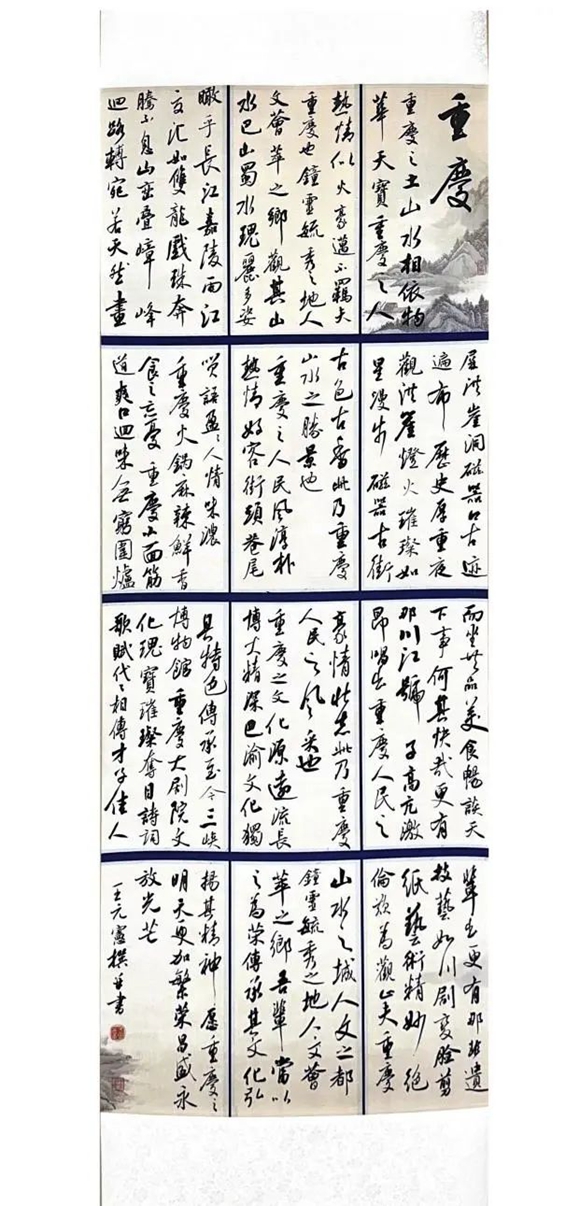 重慶
重慶之土山水相依物
華天寶重慶之人
熱情似火豪邁不羈夫
重慶也鐘靈毓秀之地人
文薈萃之鄉觀其山
水巴山蜀水瑰麗多姿
瞰乎長江嘉陵两江
交汇如雙龍戲珠奔
騰不息山峦疊嶂峰
迴路轉宛若天然畫
屏洪崖洞磁器口古迹
遍布歷史厚重夜
觀洪崖燈火璀璨如
星漫步磁器古街
古色古香此乃重慶
山水之勝景也
重慶之人民風淳朴
熱情好客街頭巷尾
笑語盈々人情味濃
重慶火鍋麻辣鮮香
食之忘憂重慶小面筋
道爽口迴味無窮圍爐
而坐共品美食暢談天
下事何其快哉更有
那川江號子高亢激
昂唱出重慶人民之
豪情壯志此乃重慶
人民之风采也
重慶之文化源遠流長
博大精深巴渝文化獨
具特色傳承至今三峡
博物館重慶大剧院文
化瑰寶璀璨奪目詩詞
歌賦代々相傳才子佳人
輩出更有那非遺
技藝如川剧变脸剪
纸藝術精妙絶
倫歎為觀止夫重慶
山水之城人文之都
鐘靈毓秀之地人文薈
萃之鄉吾輩當以
之為荣傳承其文化弘
揚其精神愿重慶之
明天更加繁荣昌盛永
放光芒
王元憲撰并書